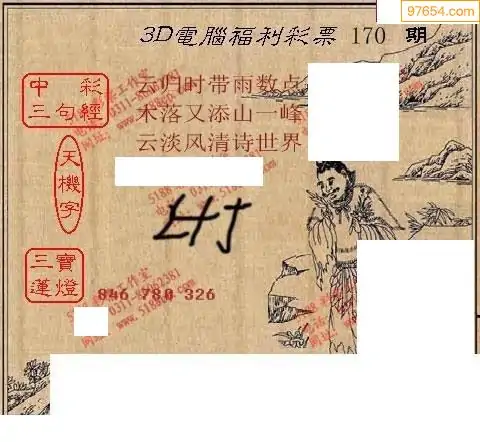 97654.com
3D電腦福利彩票 170 期
中彩三句經
云归时带雨数点
木落又添山一峰
云淡风清诗世界
天機字
三寶蓮燈
846 780 326